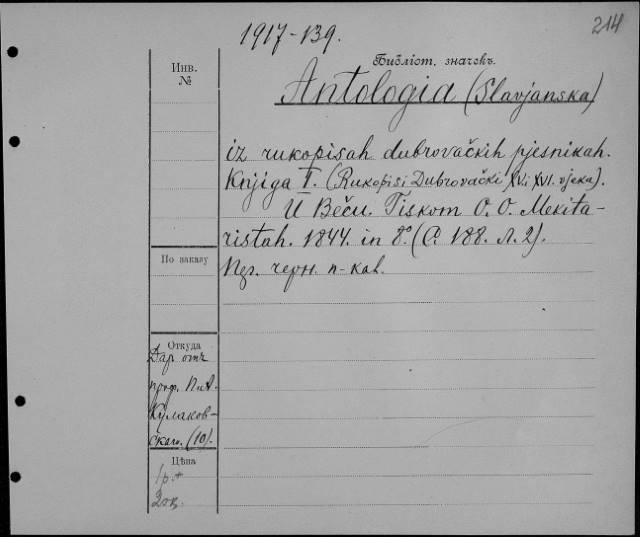 1917-139.
214
Инв.
№
Библіот. значекъ.
Antologia (Slavjanska)
iz rukopisah dubrovačkih pjesnikah.
Knjiga I. (Rukopisi Dubrovački XV. i XVI. vjeka).
U Beču. Tiskom O. O. Mekita-
ristah. 1844. in 8°. (С. 188. Л. 2).
По заказу
черн. п-кав.
Откуда
Даръ отъ
проф. П. А.
Кулаков-
скаго. (10).
Цѣна
1 р. +